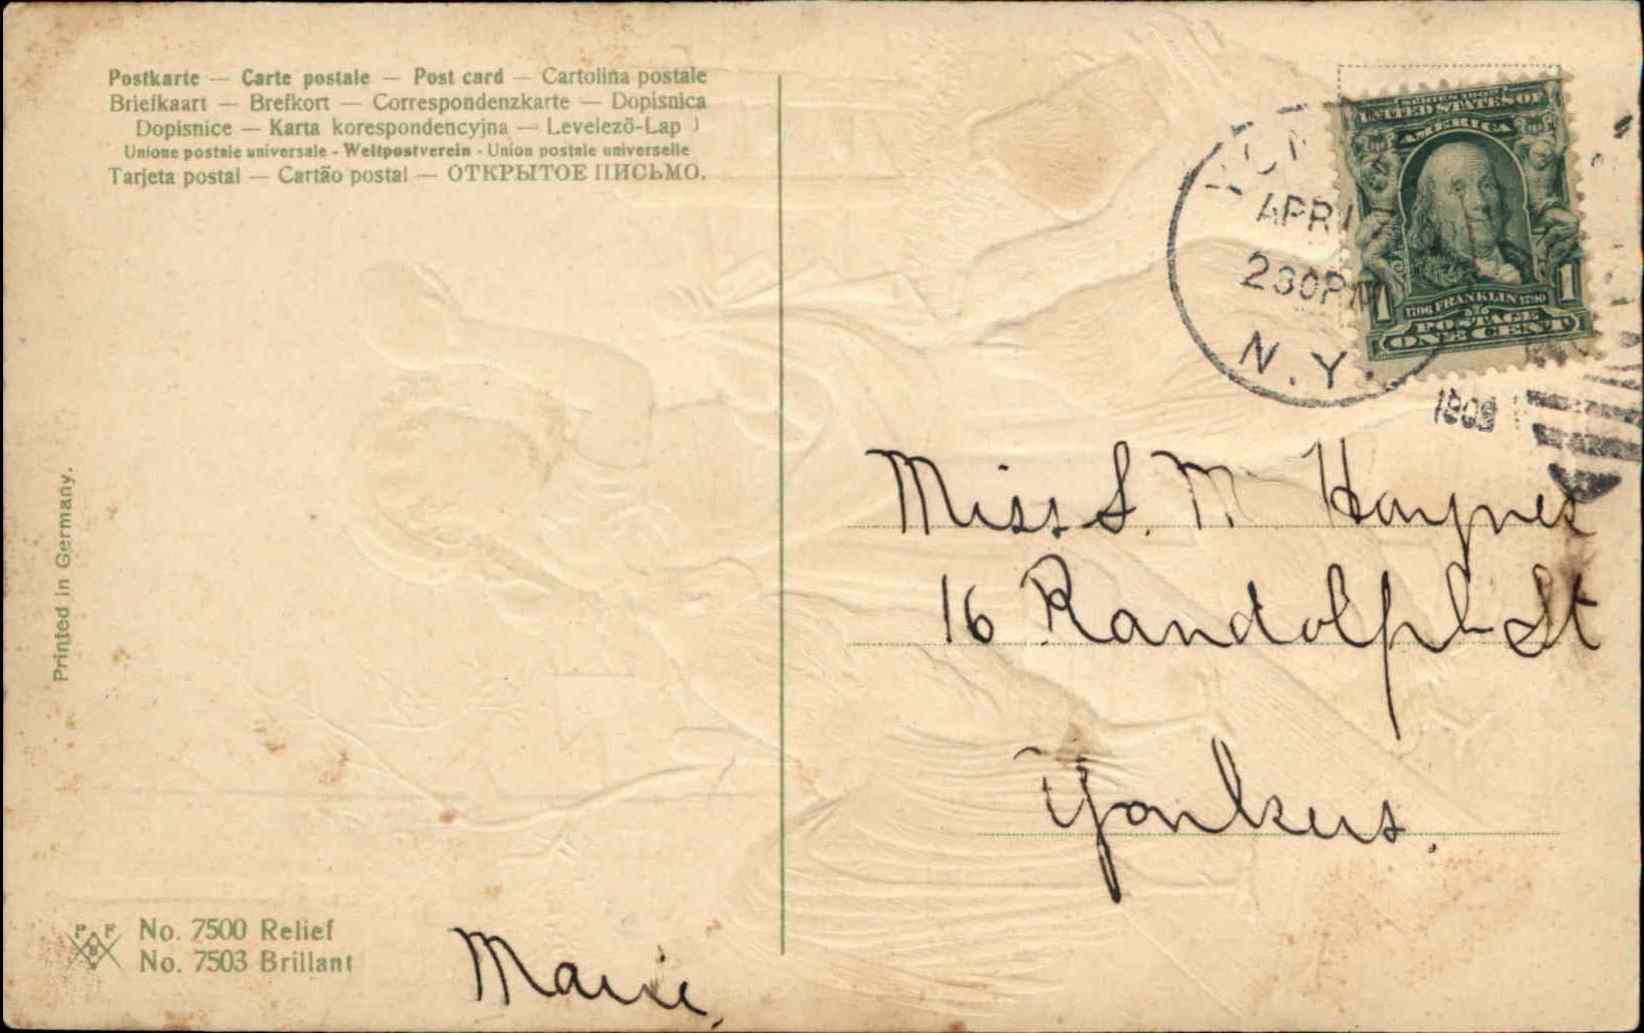 Postkarte — Carte postale — Post card — Cartolina postale
Briefkaart — Brefkort — Correspondenzkarte — Dopisnica
Dopisnice — Karta korespondencyjna — Levelezö-Lap
Unione postale universale - Weltpostverein - Union postale universelle
Tarjeta postal — Cartão postal — ОТКРЫТОЕ ПИСЬМО.
APR 17
230PM
N.Y.
1909
UNITED STATES OF
AMERICA
1706 FRANKLIN 1790
POSTAGE
1 ONE CENT 1
Miss S. M Haynes
16 Randolph St
Yonkers.
Printed in Germany.
P F B
No. 7500 Relief
No. 7503 Brillant
Marie.